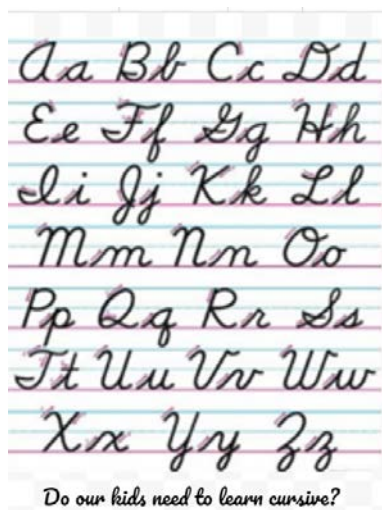 Aa Bb Cc Dd
Ee Ff Gg Hh
Ii Jj Kk Ll
Mm Nn Oo
Pp Qq Rr Ss
Tt Uu Vv Ww
Xx Yy Zz
Do our kids need to learn cursive?